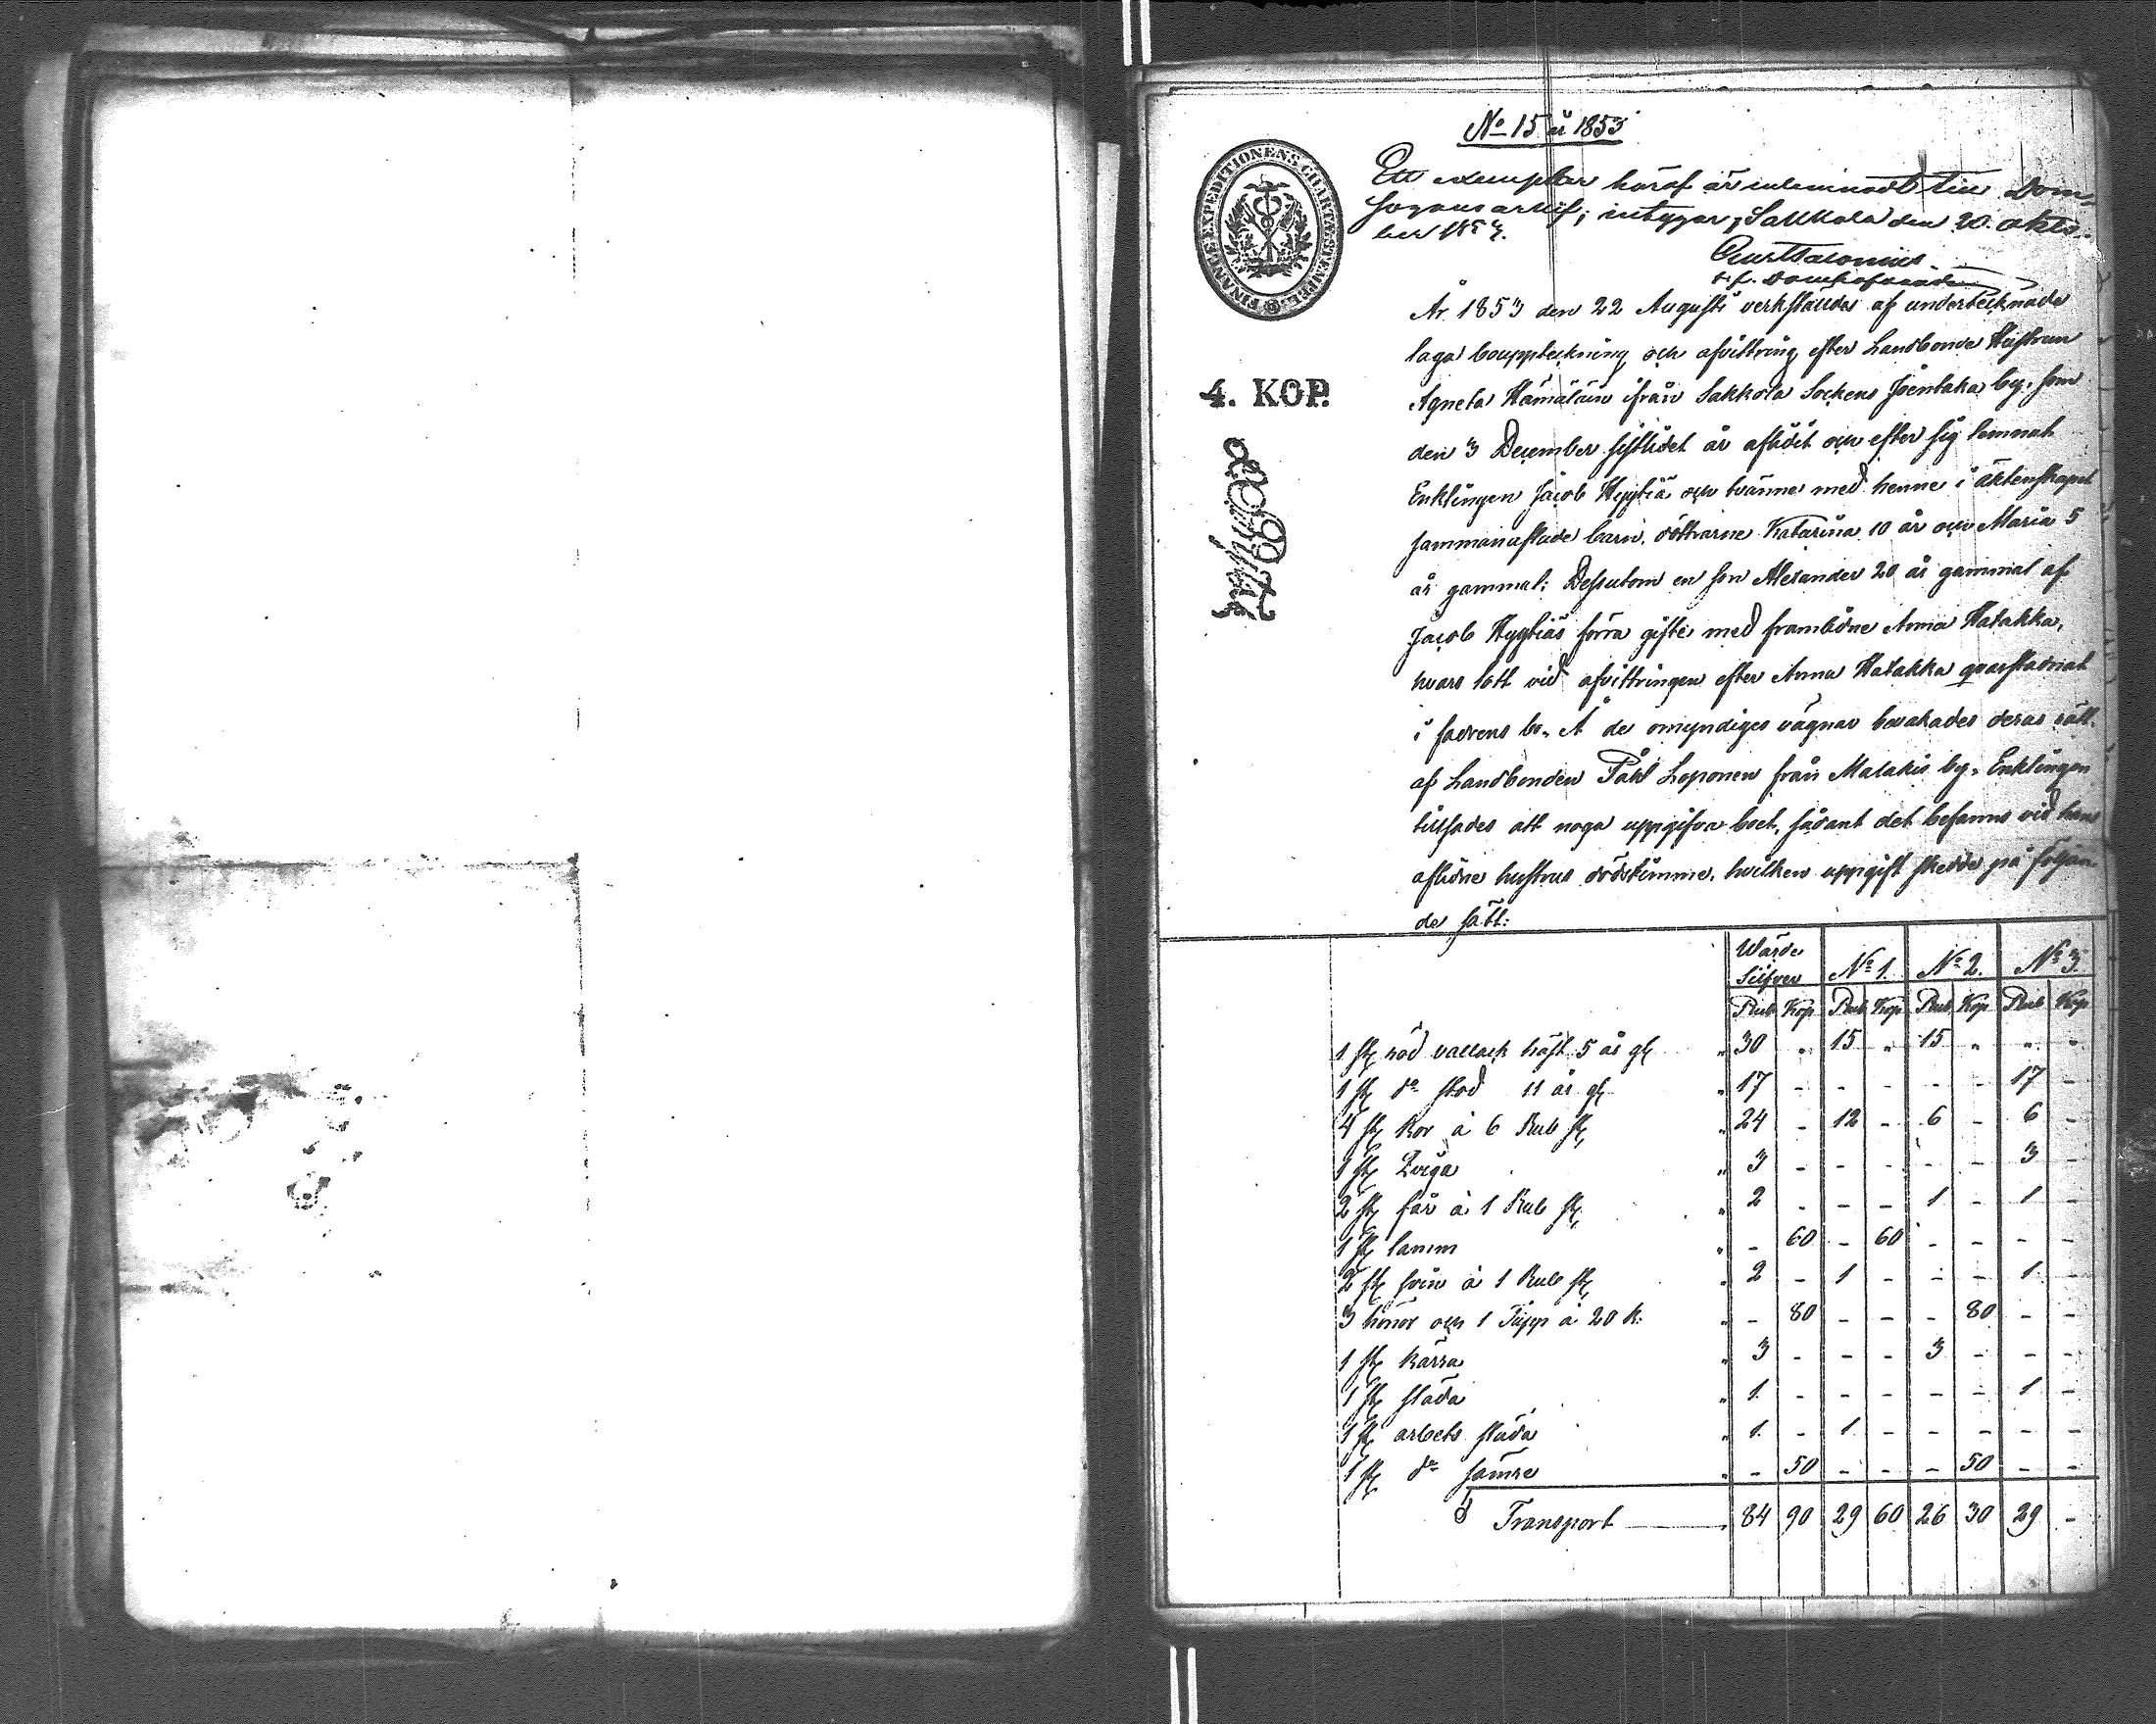 No 15 å 1853
FINANCE EXPEDITIONENS CHARTÆ STEMPEL
Ett exemplar häraf är inlemnadt till Dom-
sagans arkif; intygar, Sakkola den 20 okto-
ber 1853.
t.f. Domhafvande
4. KOP.
År 1853 den 22 Augusti verkställdes af undertecknade
laga bouppteckning och afvittring efter Landbonde Hustrun
Agneta Hämäläin ifrån Sakkola Sockens Joentaka by, som
den 3 December sistlidet år aflidit och efter sig lemnat
Enklingen Jacob Hyytiä och tvänne med henne i äktenskapet
sammanaflade barn, döttrarne Katarina 10 år och Maria 5
år gammal; Dessutom en son Alexander 20 år gammal af
Jacob Hyytiäs förra gifte med framlidne Anna Hatakka,
hvars lott vid afvittringen efter Anna Hatakka qvarstadnat
i fadrens bo. Å de omyndiges vägnar bevakades deras rätt
af Landbonden Påhl Loponen från Matakis by. Enklingen
tillsades att noga uppgifva boet, sådant det befanns vid hans
aflidne hustrus dödstimme, hvilken uppgift skedde på följan-
de sätt:
Wärde Silfver No 1. No 2. No 3.
Rub Kop Rub Kop Rub Kop Rub Kop
1 st röd vallack häst 5 år gl " 30 " 15 " 15 " " "
1 st do stod 11 år gl " 17 - - - - - 17 -
4 st kor à 6 Rub st " 24 - 12 - 6 - 6 -
1 st Qviga " 3 - - - - - 3 -
2 st får à 1 Rub st " 2 - - - 1 - 1 -
1 st lamm " - 60 - 60 - - - -
2 st svin à 1 Rub st " 2 - 1 - - - 1 -
3 hönor och 1 Tupp à 20 k. " - 80 - - - 80 - -
1 st kärra " 3 - - - 3 - - -
1 st släda " 1 - - - - - 1 -
1 st arbets släda " 1 - 1 - - - - -
1 st do sämre " - 50 - - - 50 - -
Transport 84 90 29 60 26 30 29 -